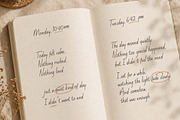 Monday, 10:40am
Today felt calm.
Nothing rushed.
Nothing loud.
just a quiet kind of day
I didn't want to end
Tuesday 6:42 pm
The day moved quietly.
Nothing too special happened,
but I didn't feel the need
I sat for a while,
watching the light fade slowly
And somehow
that was enough